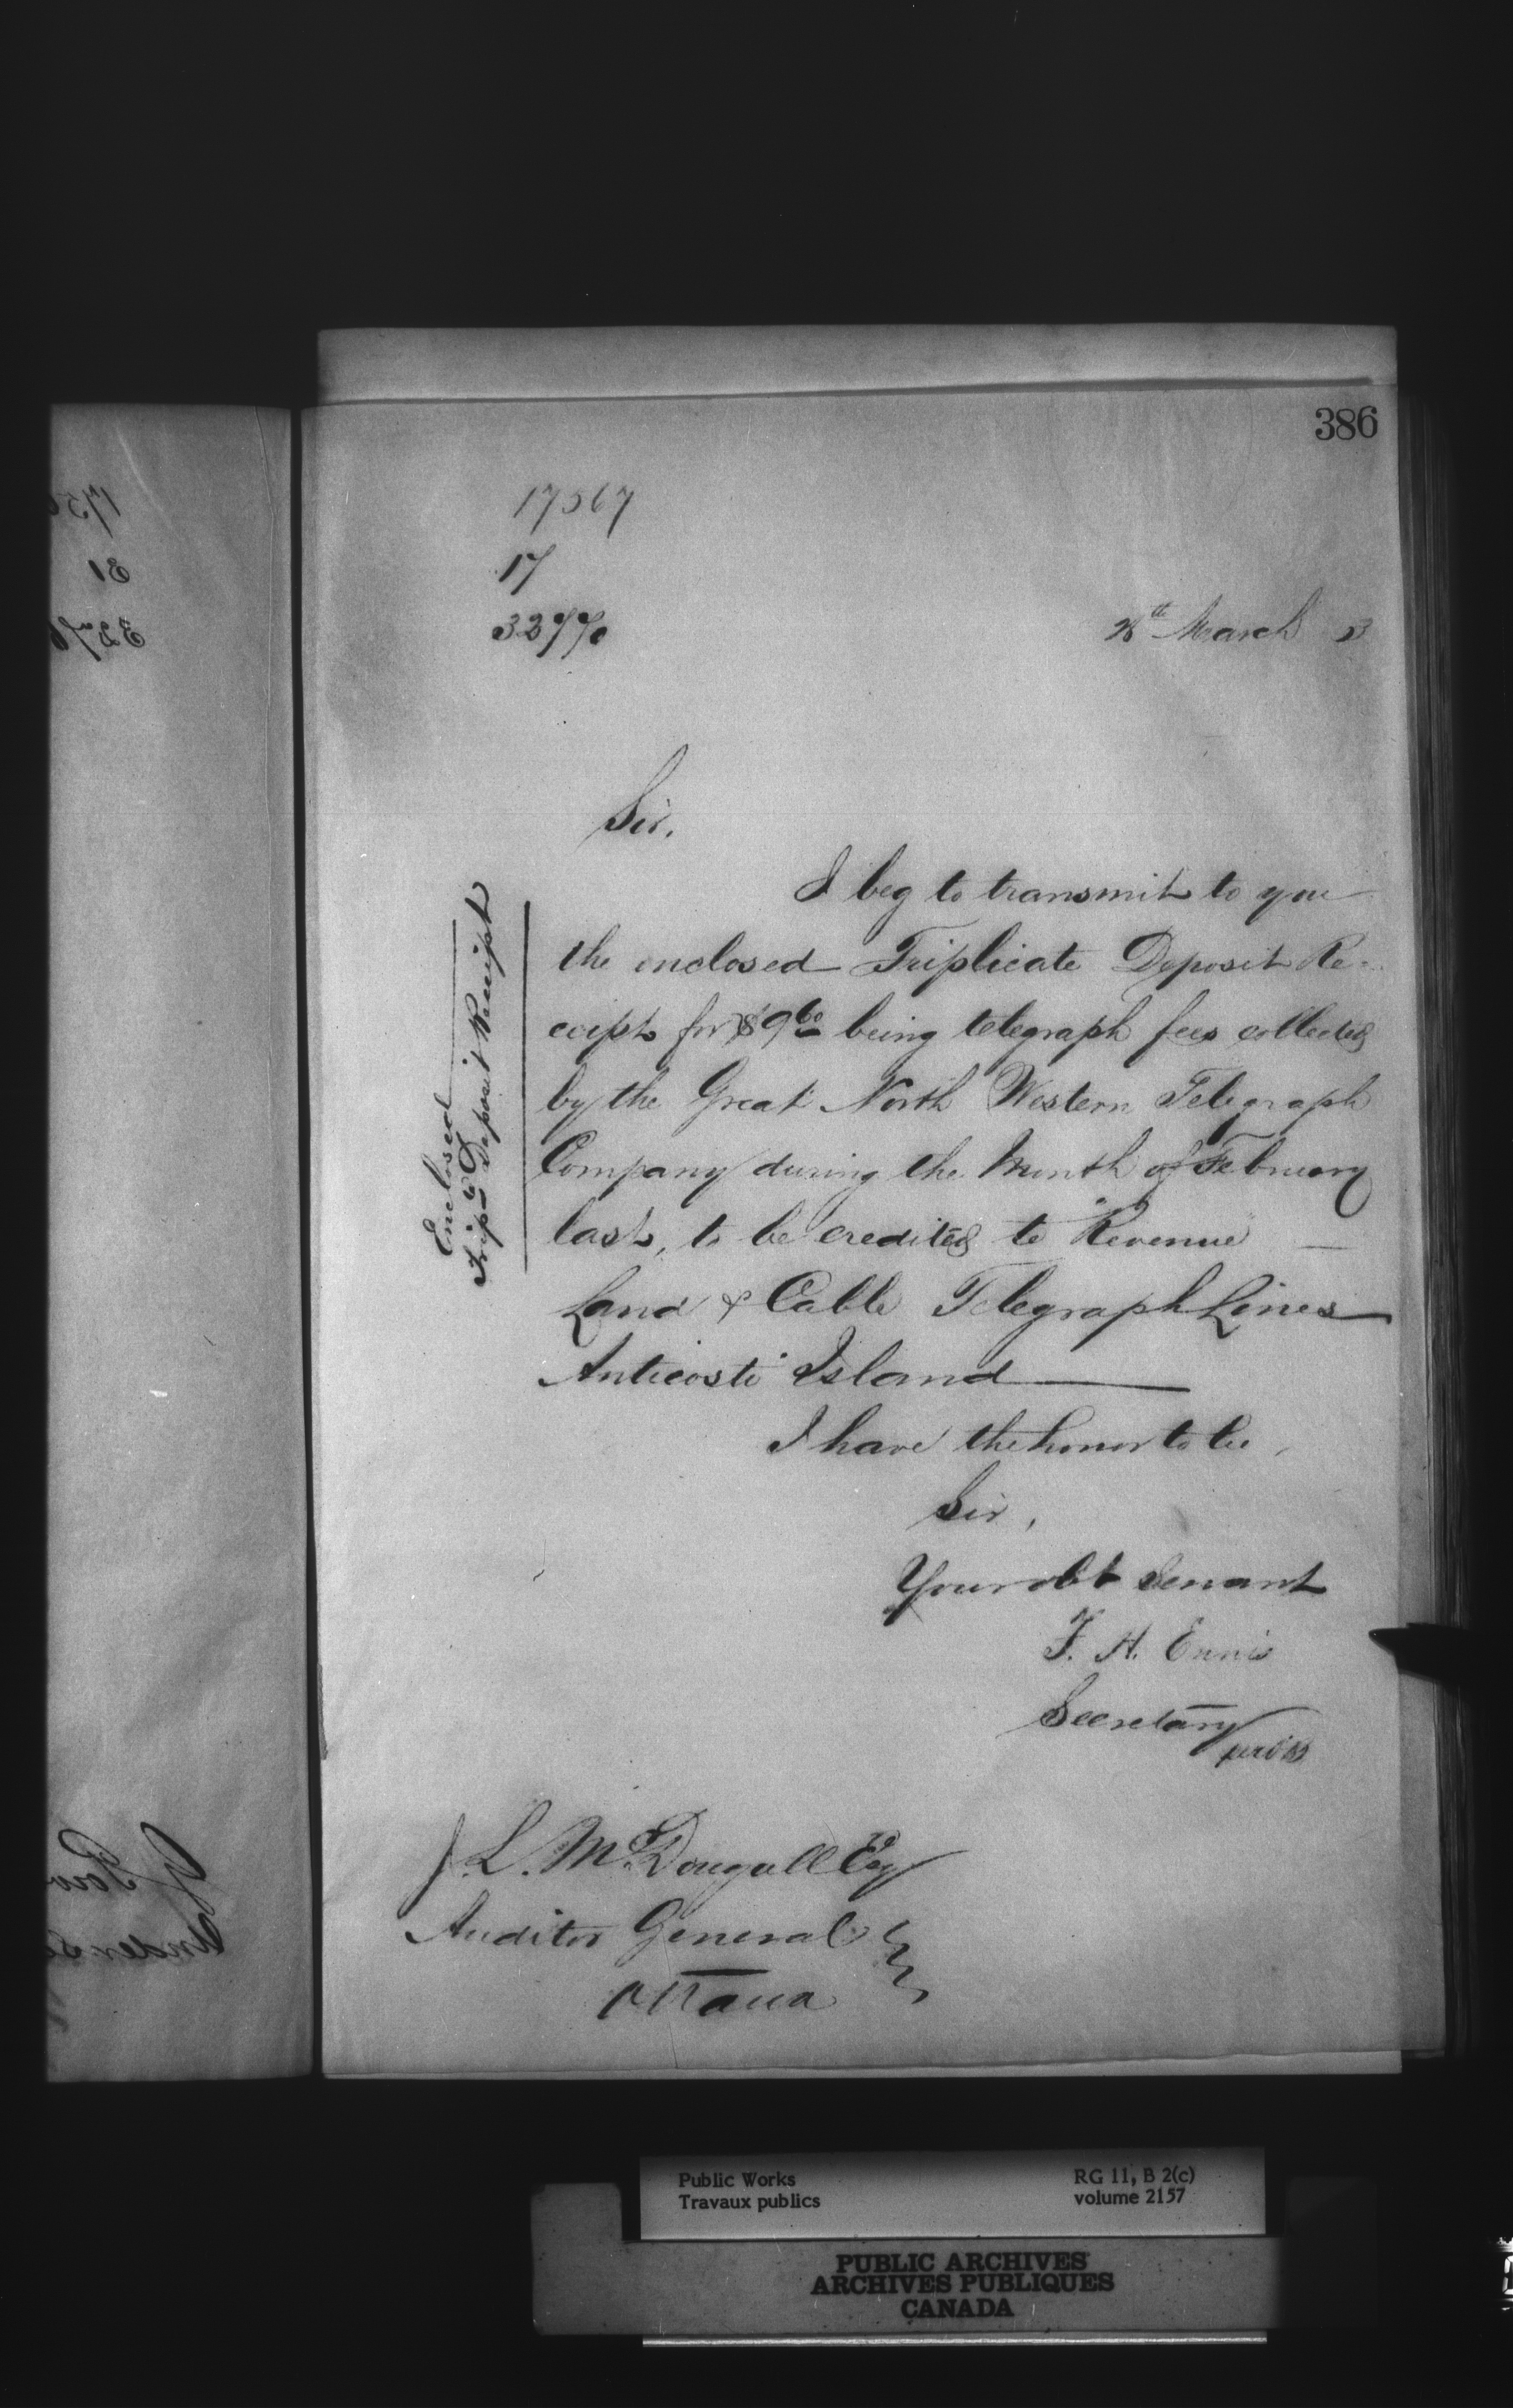 386
17567
17
32770
28th March 3
Sir,
I beg to transmit to you
the enclosed Triplicate Deposit Re-
ceipt for $9 60 being telegraph fees collected
by the Great North Western Telegraph
Company during the Month of February
last, to be credited to "Revenue" —
Land & Cable Telegraph Lines
Anticosti Island —
Enclosed
Trip. Deposit Receipt
I have the honor to be,
Sir,
Your obt Servant
F. H. Ennis
Secretary
J. L. McDougall Esq
Auditor General
Ottawa
Public Works
Travaux publics
RG 11, B 2(c)
volume 2157
PUBLIC ARCHIVES
ARCHIVES PUBLIQUES
CANADA